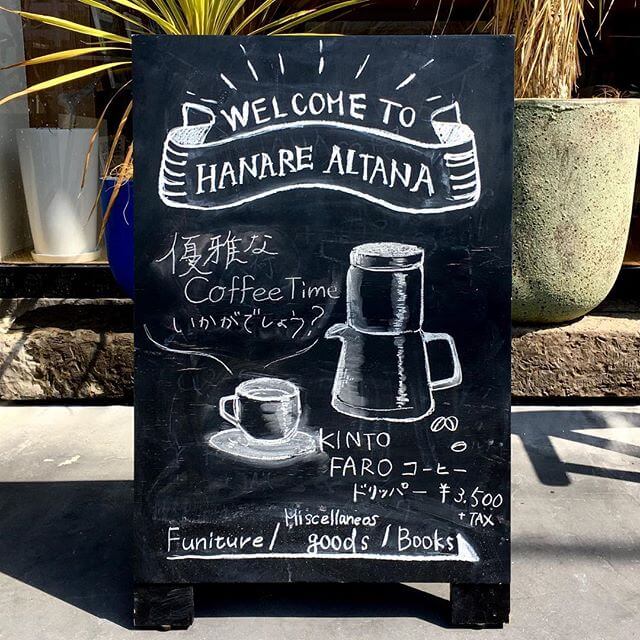 WELCOME TO
HANARE ALTANA
優雅な
Coffee Time
いかがでしょう?
KINTO
FARO コーヒー
ドリッパー ¥3,500
+ TAX
Miscellaneas
Funiture / goods / Books